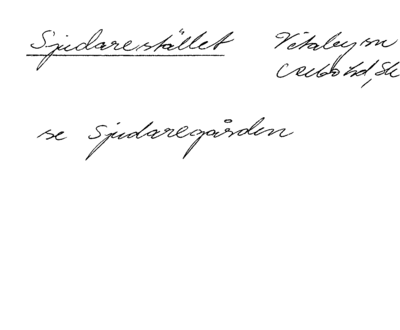 Sjudarestället
Vitaby sn
Albo hd, Sk
se Sjudaregården